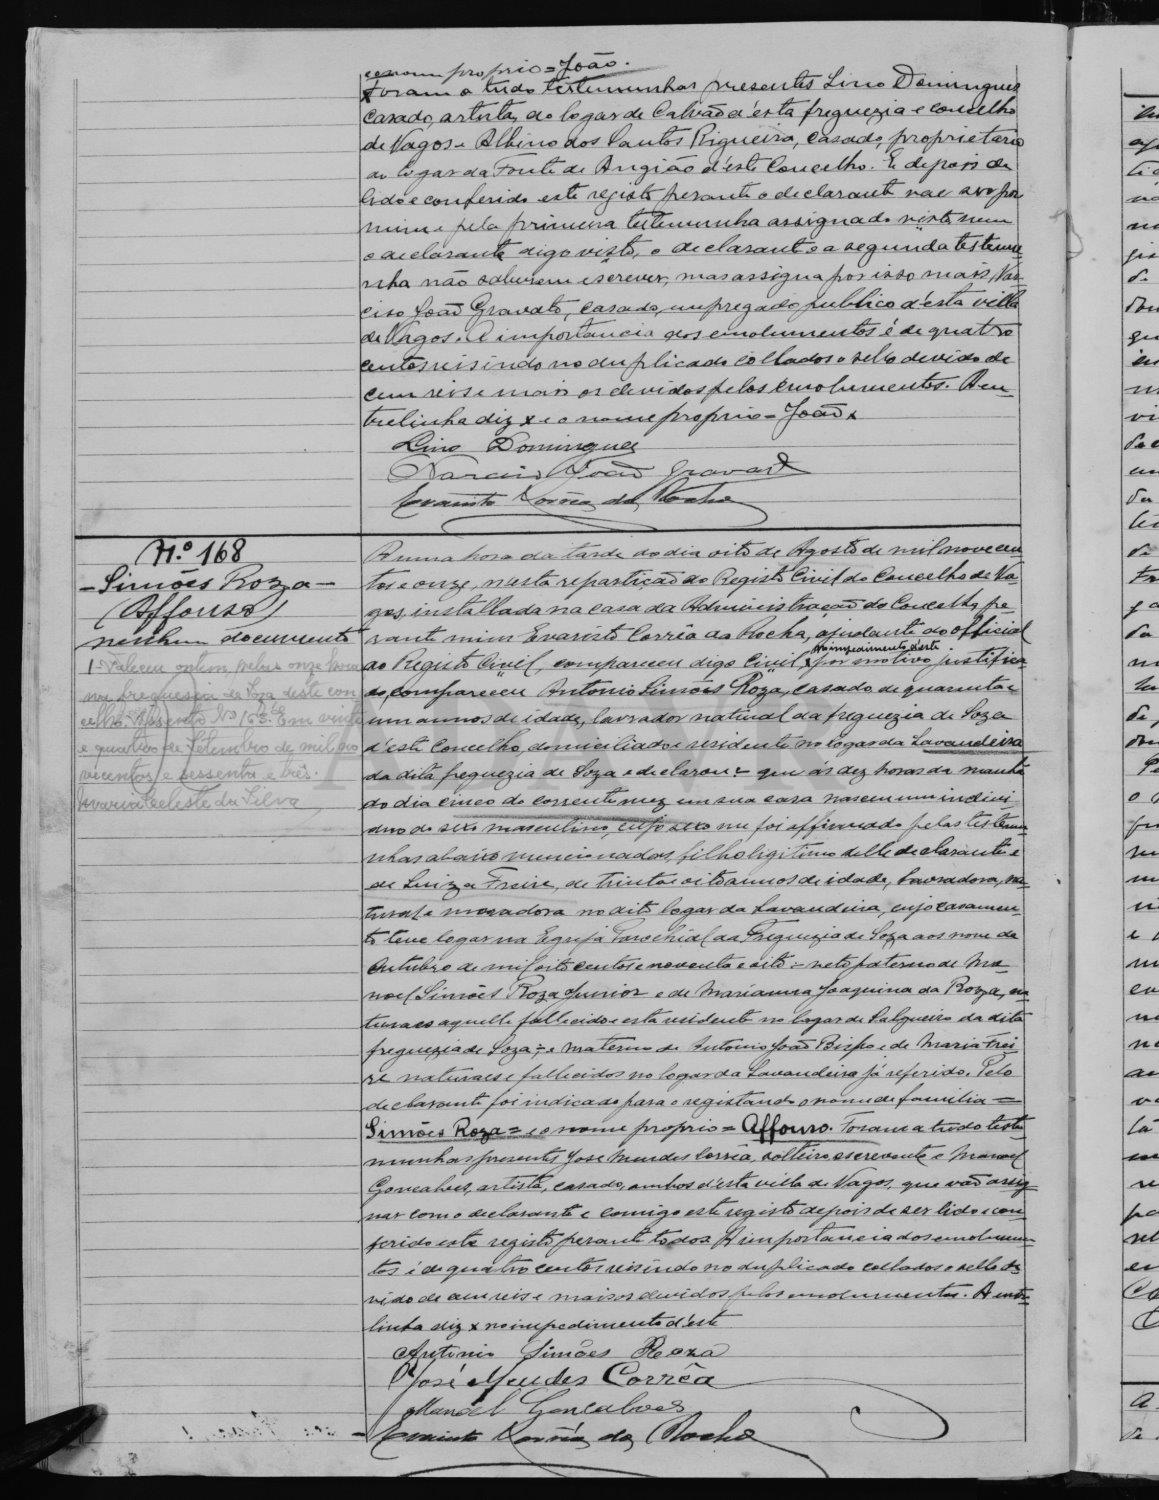 e o nome proprio = João.
Foram a tudo testemunhas presentes Lino Domingues
casado, artista, do logar de Calvão d'esta freguezia e concelho
de Vagos e Albino dos Santos Rigueira, casado, proprietario
do logar da Fonte de Angião d'este Concelho. E depois de
lido e conferido este registo perante o declarante vae ser por
mim e pela primeira testemunha assignado visto nem
o declarante digo visto, o declarante e a segunda testemu-
nha não saberem escrever, mas assigna por isso mais, Nar-
ciso João Gravato, casado, empregado publico d'esta villa
de Vagos. A importancia dos emolumentos é de quatro
centos reis indo no duplicado collados o sello devido de
cem reis e mais os devidos pelos emolumentos. A en-
trelinha diz x e o nome proprio = João x
Lino Domingues
Narciso João Gravato
Evaristo Corrêa da Rocha
N.º 168
- Simões Roza -
(Affonso)
nenhum documento
1. Faleceu ontem, pelas onze horas
na freguesia de Soza deste con
celho. Assento Nº Em vinte
e quatro de Setembro de mil no
vecentos e sessenta e três.
Maria Celeste da Silva
A uma hora da tarde do dia oito de Agosto de mil novecen-
tos e onze, nesta repartição do Registo Civil do Concelho de Va-
gos, installada na casa da Administração do Concelho, pe-
rante mim Evaristo Corrêa da Rocha, ajudante do official
no impedimento d'este
do Registo Civil, compareceu digo Civil, x por motivo justifica-
do, compareceu Antonio Simões Roza, casado de quarenta e
um annos de idade, lavrador natural da freguezia de Soza
d'este Concelho, domiciliado e residente no logar da Lavandeira
da dita freguezia de Soza e declarou = que ás dez horas da manhã
do dia cinco do corrente mez em sua casa nasceu um indivi-
duo do sexo masculino, cujo sexo me foi affirmado pelas testemu-
nhas abaixo mencionadas, filho legitimo delle declarante e
de Luiza Freire, de trinta e oito annos de idade, lavradora, na-
tural e moradora no dito logar da Lavandeira, cujo casamen-
to teve logar na Egreja Parochial da Freguezia de Soza aos nove de
Outubro de mil oito centos e noventa e oito = neto paterno de Ma-
noel Simões Roza Junior e de Marianna Joaquina da Roza, na-
turaes aquelle fallecido e esta residente no logar de Salgueiro da dita
freguezia de Soza = e materno de Antonio João Bispo e de Maria Frei-
re naturaes e fallecidos no logar da Lavandeira já referido. Pelo
declarante foi indicado para o registando o nome de familia =
Simões Roza = e o nome proprio = Affonso. Foram a tudo teste-
munhas presentes José Mendes Corrêa, solteiro escrevente e Manoel
Goncalves, artista, casado, ambos d'esta villa de Vagos, que vão assig-
nar com o declarante e comigo este registo depois de ser lido e con-
ferido este registo perante todos. A importancia dos emolumen-
tos é de quatro centos reis indo no duplicado collados o sello de-
vido de cem reis e mais os devidos pelos emolumentos. A entre-
linha diz x no impedimento d'este
Antonio Simões Roza
José Mendes Corrêa
Manoel Goncalves
Evaristo Corrêa da Rocha